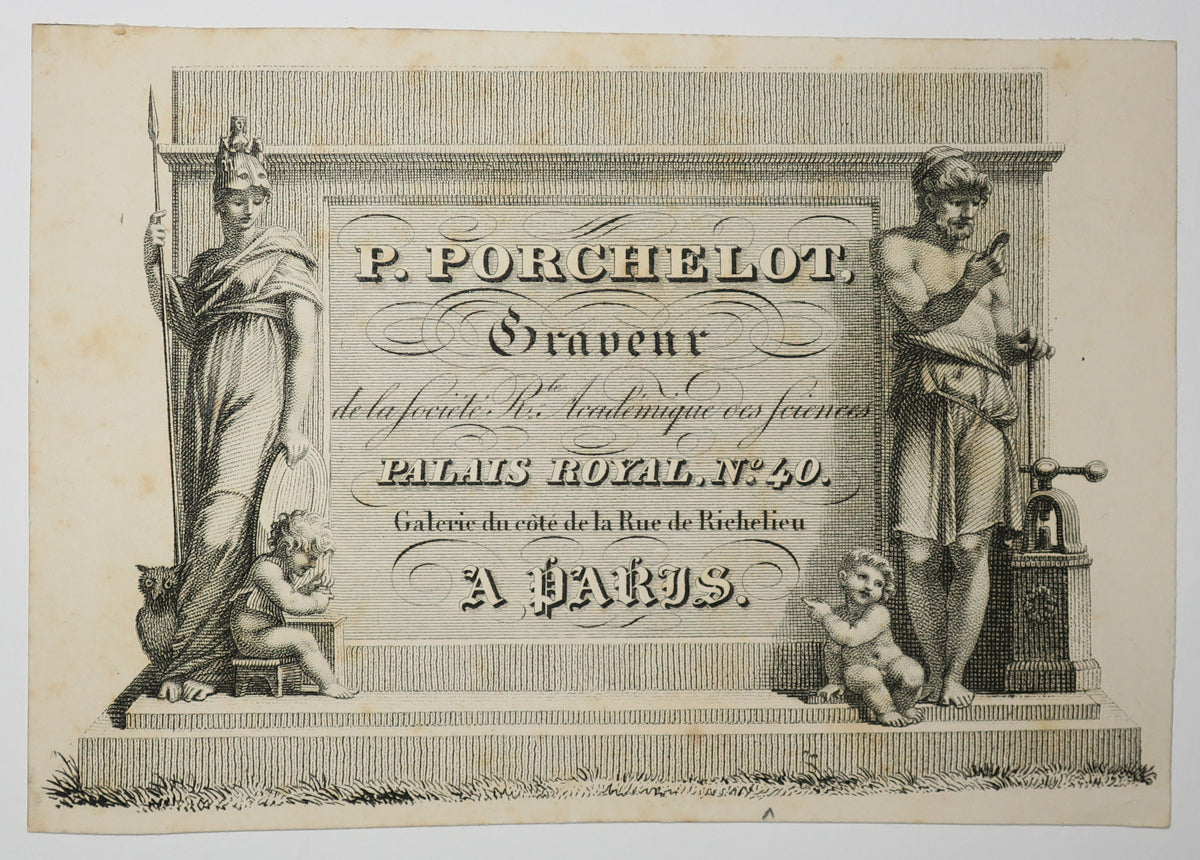 P. PORCHELOT,
Graveur
de la Société R.le Académique des Sciences
PALAIS ROYAL, No. 40.
Galerie du côté de la Rue de Richelieu
A PARIS.